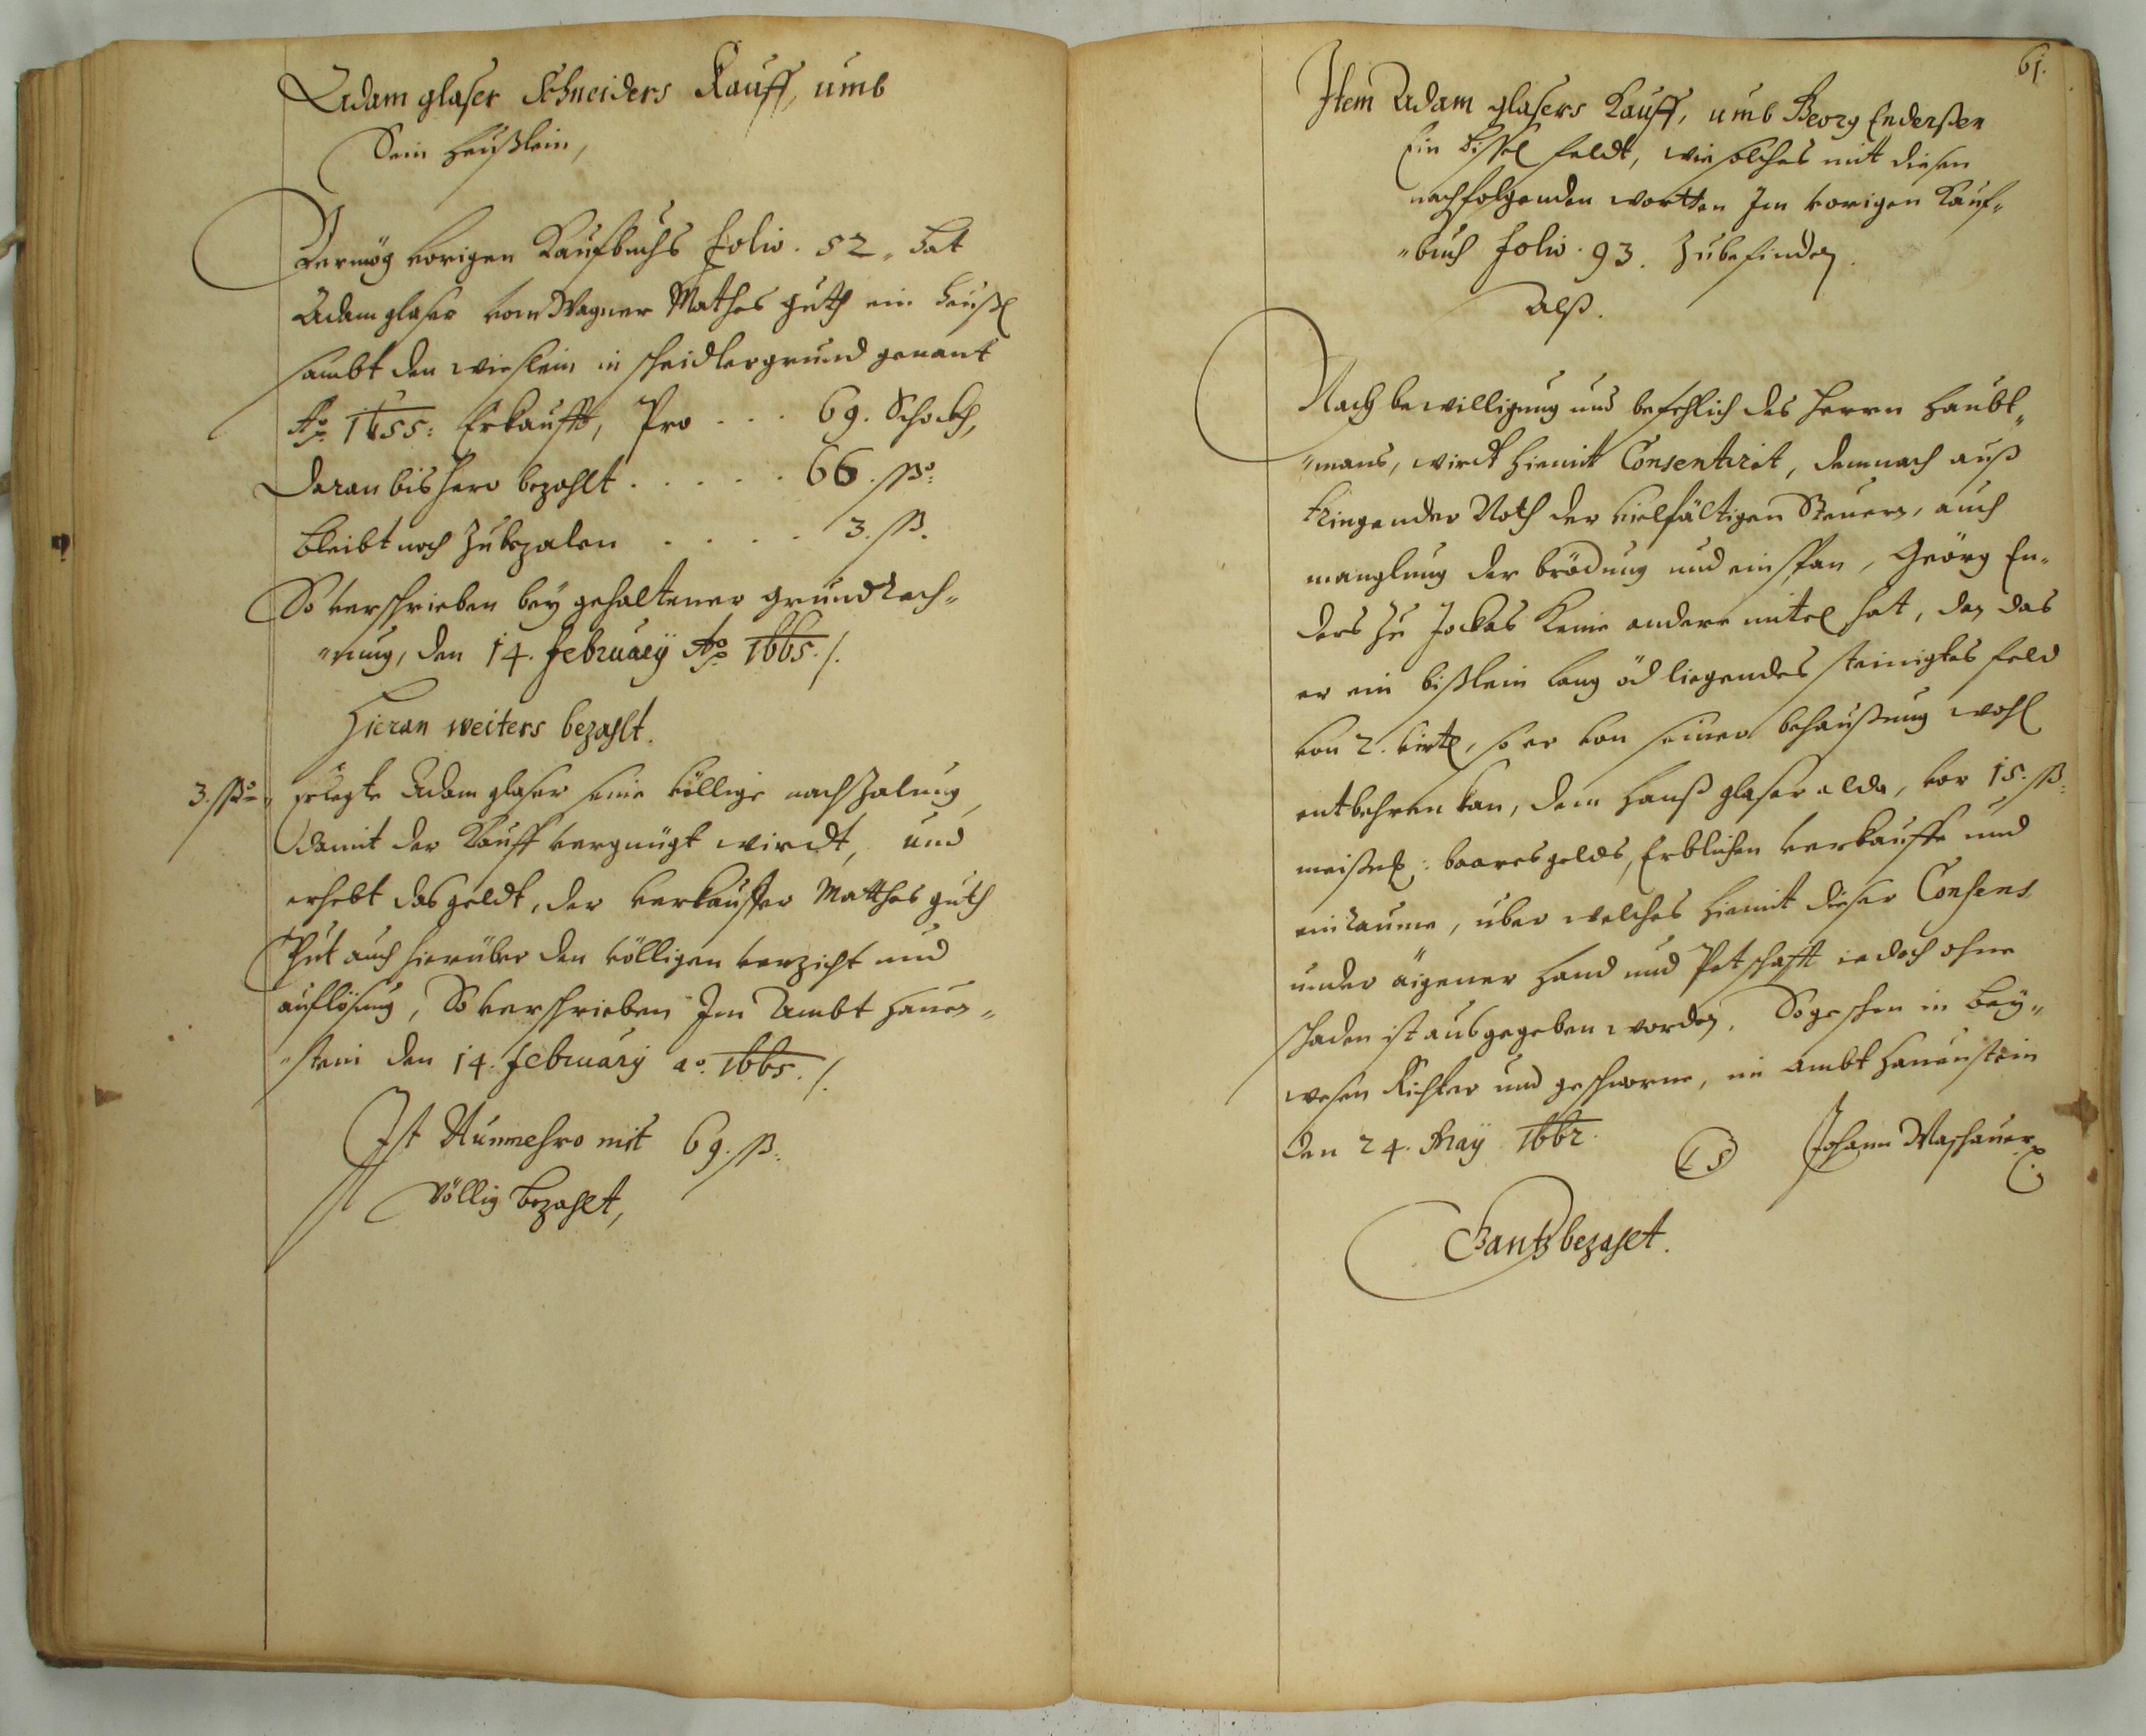 Adam glaser Schneiders Kauff, umb
Sein heußlein,
Vermög vorigen Kaufbuchs folio. 52, hat
Adam glaser vom Wagner Mathes guth ein heußl
sambt den wießlein in scheidlergrund genant
Ao. 1655: Erkaufft, Pro . . . 69. Schockh,
Daran bishero bezahlt . . . . . 66. ßo:
bleibt noch Zubezalen . . . . 3. ß.
So verschrieben bey gehaltener grundtrech„
„nung, den 14. february Ao. 1665./.
Hieran weiters bezahlt.
3. ßo „ erlegte Adam glaser seine völlige nachZalung,
damit der Kauff vergnügt wirdt, und
erhebt das geldt, der verkauffer Matthes guth
Thut auch hierüber den völligen verzicht und
auflösung, So verschrieben Im Ambt Hauen„
„stein den 14. february ao. 1665./.
Ist Nunmehro mit 69. ß.
völlig bezahlt,
61.
Item Adam glasers Kauff, umb Georg Enderßen
Ein bissel feldt, wie solches mit diesen
nachfolgenden wortten Im vorigen Kauf„
„buch folio. 93. Zubefinden.
Alß.
Nach bewilligung und befehlich des Herrn Haubt„
„mans, wirdt hiemit Consentirit, demnach auß
tringender Noth der vielfältigen Steuern, auch
manglung der brödung und einspan, Geörg En„
ders zu Jockes Keine andere mitel hat, den das
er ein bißlein lang öd liegendes steinigtes feld
von 2. virtl, so er von seiner behaußung wohl
entbehren kan, dem Hanß glaser alda, vor 15. ß:
meißnl: baares gelds, Erblichen verkauffe und
einraume, uber welches hiemit dieser Consens
under äigener Hand und Petschafft iedoch ohne
schaden ist ausgegeben worden. So geschehen in bey„
wesen Richter und geschworne, im ambt Hauenstein
den 24. May 1662.
LS Johann Maschauer
Gantz bezahlt.